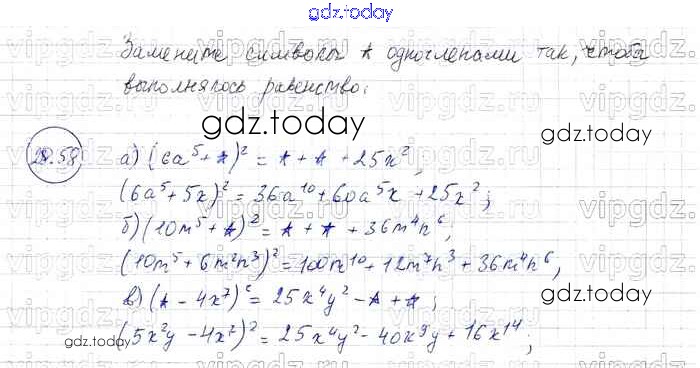 gdz.today
Замените символы * одночленами так, чтобы
выполнялось равенство:
gdz.today
28.58
а) (6a⁵ + *)² = * + * + 25x²,
(6a⁵ + 5x)² = 36a¹⁰ + 60a⁵x + 25x²;
б) (10m⁵ + *)² = * + * + 36m⁴n⁶,
(10m⁵ + 6m²n³)² = 100m¹⁰ + 12m⁷n³ + 36m⁴n⁶,
gdz.today
в) (* - 4x⁷)² = 25x⁴y² - * + *;
gdz.today
(5x²y - 4x⁷)² = 25x⁴y² - 40x⁹y + 16x¹⁴;